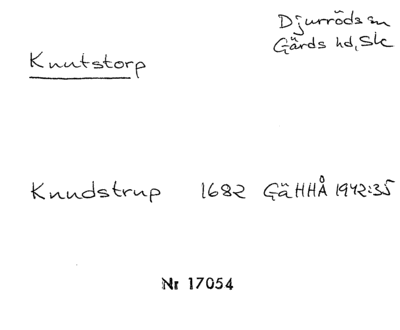 Djurröds sn
Gärds hd, Sk
Knutstorp
Knudstrup 1682 GäHHÅ 1942:35
Nr 17054